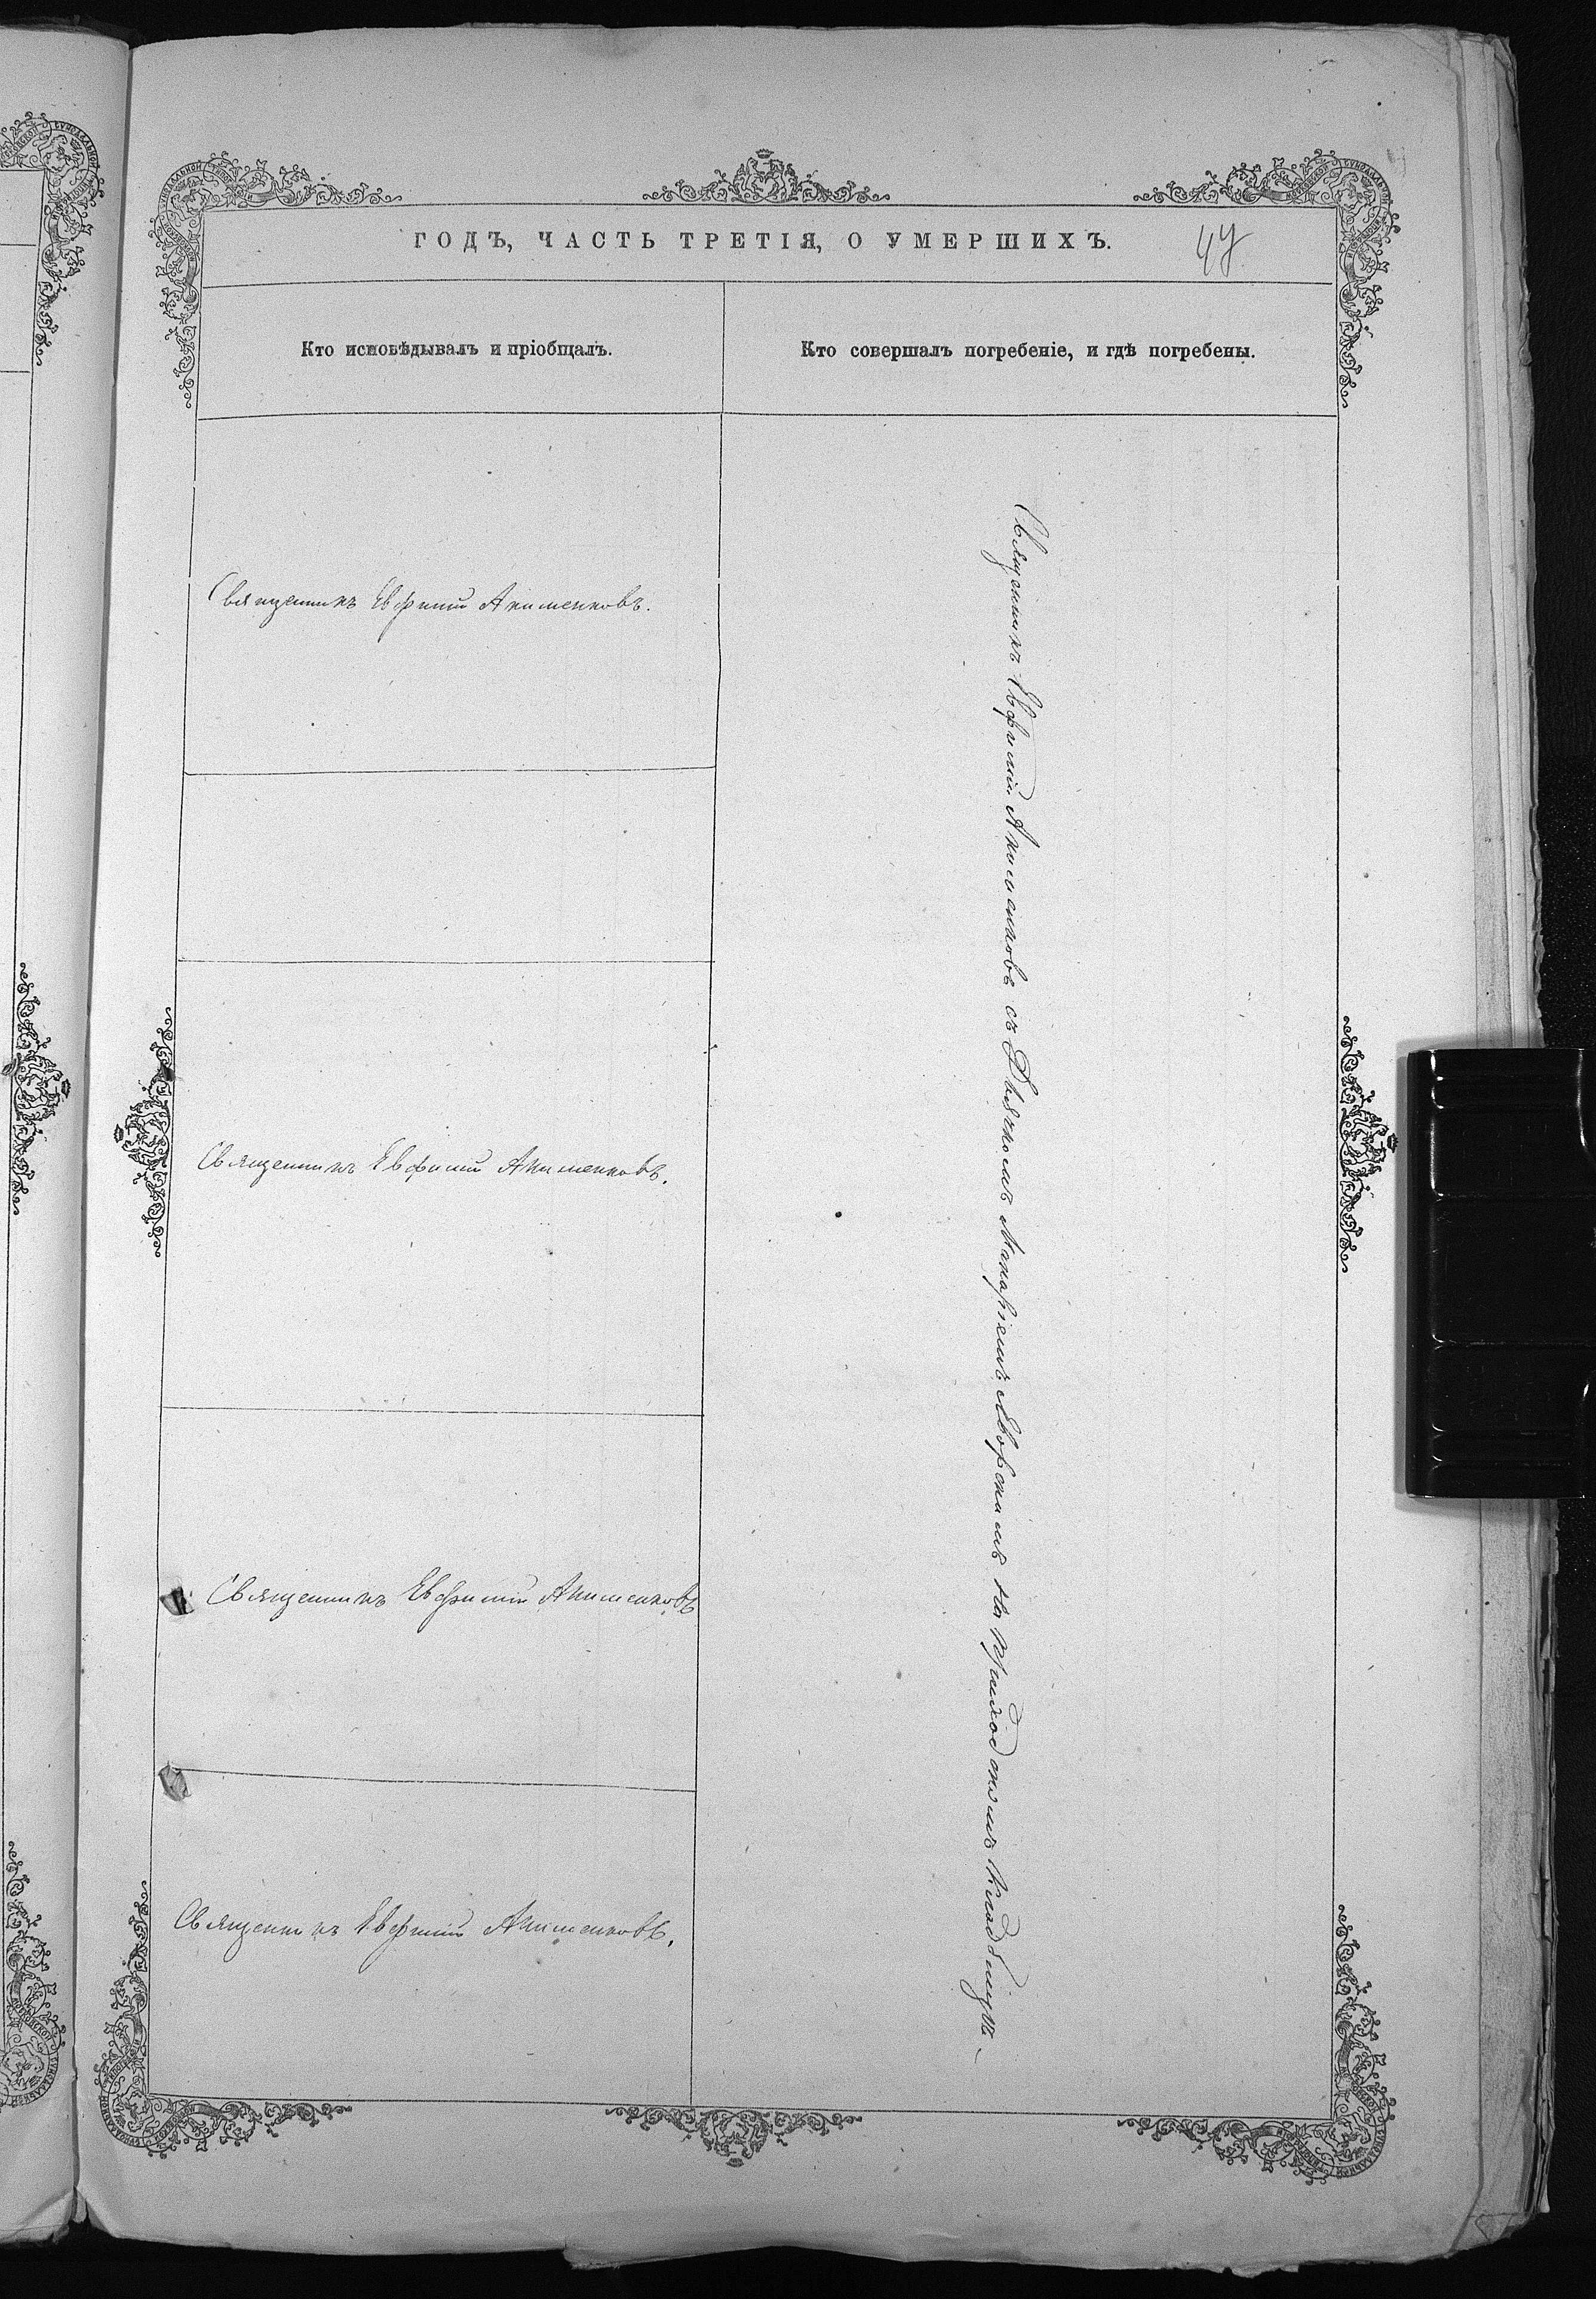 ГОДЪ, ЧАСТЬ ТРЕТІЯ, О УМЕРШИХЪ.
Кто исповѣдывалъ и пріобщалъ.
Кто совершалъ погребеніе, и гдѣ погребены.
Священникъ Евфимій Акименковъ.
Священникъ Евфимій Акименковъ.
Священникъ Евфимій Акименковъ
Священникъ Евфимій Акименковъ.
Священникъ Евфимій Акименковъ съ Дьячкомъ Макаріемъ Яворскимъ на приходскомъ кладбищѣ